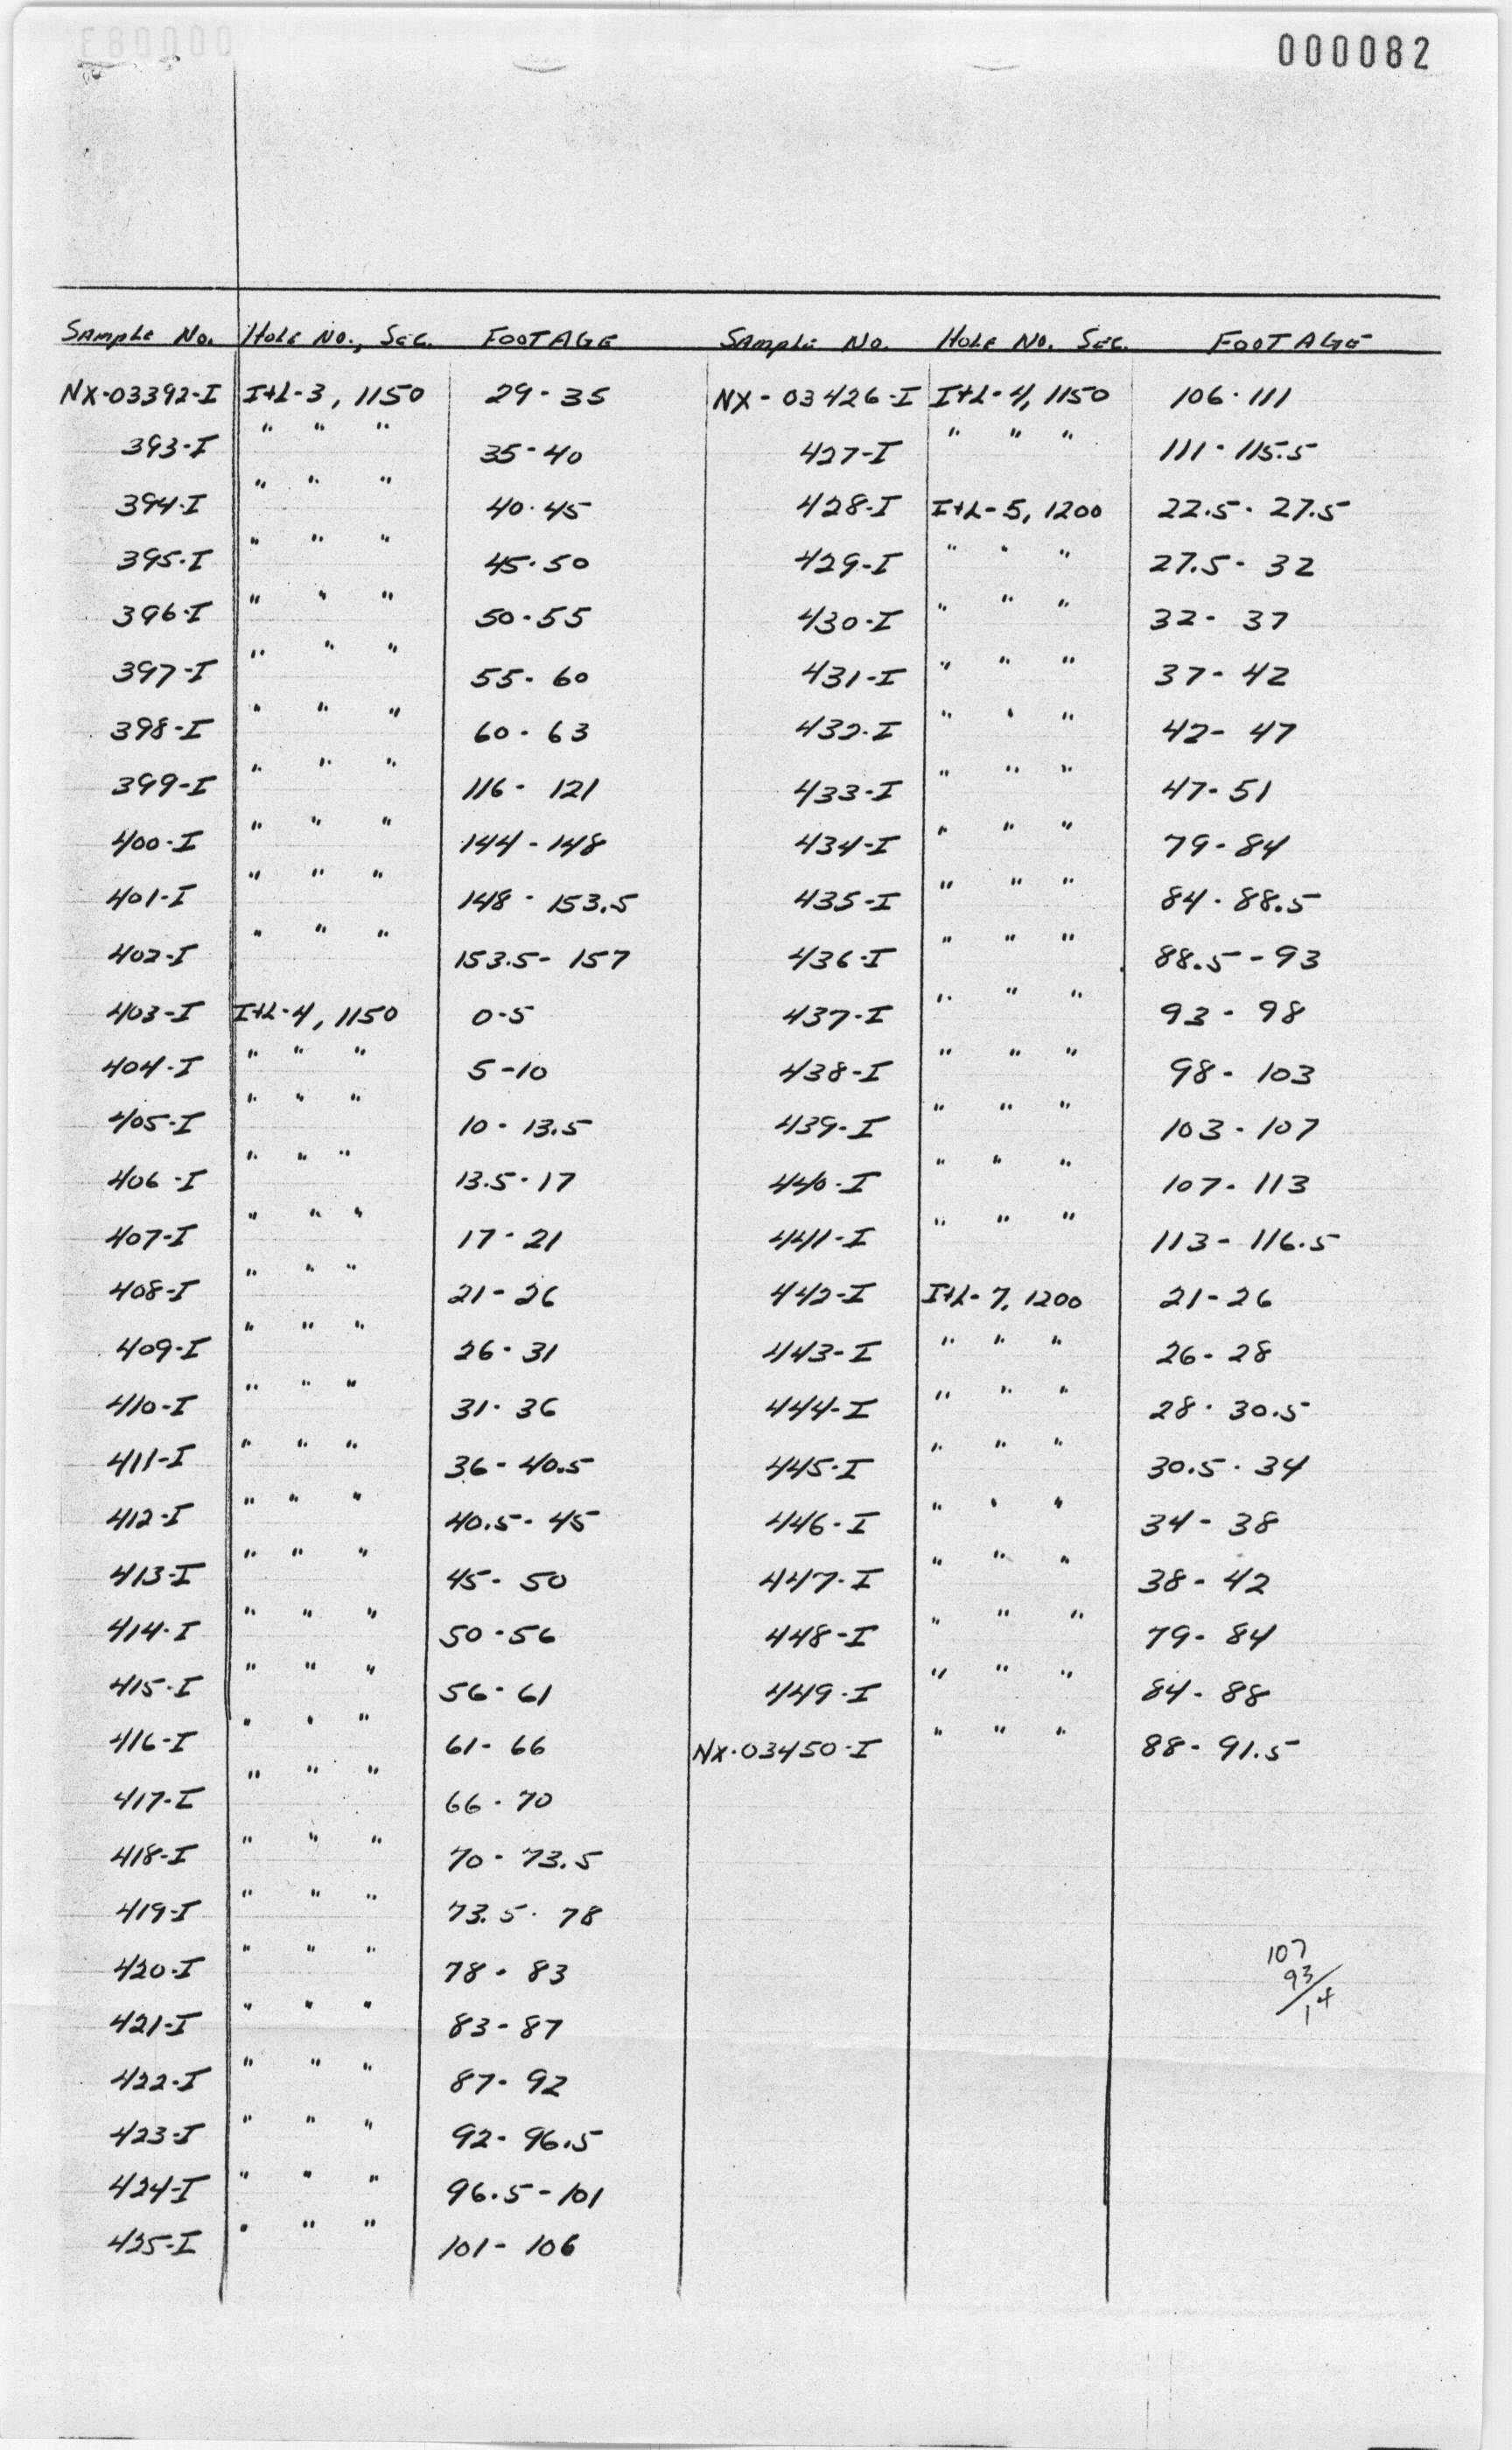 000082
Sample No. Hole No., Sec. FOOTAGE Sample No. Hole No. Sec. FOOTAGE
NX-03392-I I+L-3, 1150 29-35 NX-03426-I I+L-4, 1150 106-111
393-I " " " 35-40 427-I " " " 111-115.5
394-I " " " 40-45 428-I I+L-5, 1200 22.5-27.5
395-I " " " 45-50 429-I " " " 27.5-32
396-I " " " 50-55 430-I " " " 32-37
397-I " " " 55-60 431-I " " " 37-42
398-I " " " 60-63 432-I " " " 42-47
399-I " " " 116-121 433-I " " " 47-51
400-I " " " 144-148 434-I " " " 79-84
401-I " " " 148-153.5 435-I " " " 84-88.5
402-I " " " 153.5-157 436-I " " " 88.5-93
403-I I+L-4, 1150 0-5 437-I " " " 93-98
404-I " " " 5-10 438-I " " " 98-103
405-I " " " 10-13.5 439-I " " " 103-107
406-I " " " 13.5-17 440-I " " " 107-113
407-I " " " 17-21 441-I " " " 113-116.5
408-I " " " 21-26 442-I I+L-7, 1200 21-26
409-I " " " 26-31 443-I " " " 26-28
410-I " " " 31-36 444-I " " " 28-30.5
411-I " " " 36-40.5 445-I " " " 30.5-34
412-I " " " 40.5-45 446-I " " " 34-38
413-I " " " 45-50 447-I " " " 38-42
414-I " " " 50-56 448-I " " " 79-84
415-I " " " 56-61 449-I " " " 84-88
416-I " " " 61-66 NX-03450-I " " " 88-91.5
417-I " " " 66-70
418-I " " " 70-73.5
419-I " " " 73.5-78
420-I " " " 78-83
107
93
14
421-I " " " 83-87
422-I " " " 87-92
423-I " " " 92-96.5
424-I " " " 96.5-101
425-I " " " 101-106